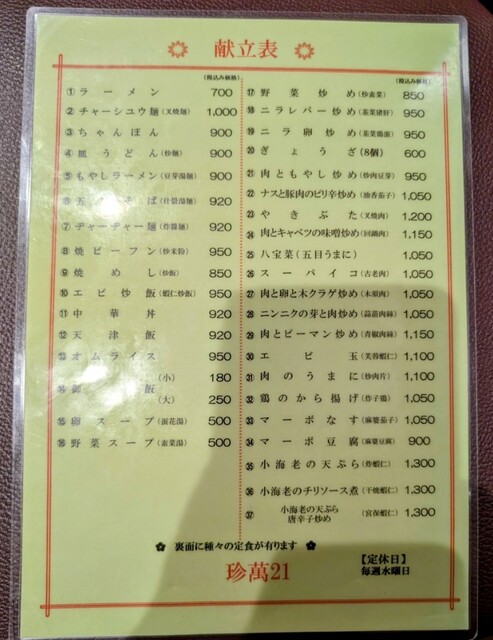 献立表
(税込み価格)
① ラーメン 700
② チャーシュウ麺 (叉焼麺) 1,000
③ ちゃんぽん 900
④ 皿うどん (炒麺) 900
⑤ もやしラーメン (豆芽湯麺) 900
⑥ 五目そば (什景湯麺) 920
⑦ ヂャーヂャー麺 (炸醤麺) 920
⑧ 焼ビーフン (炒米粉) 950
⑨ 焼めし (炒飯) 850
⑩ エビ炒飯 (蝦仁炒飯) 950
⑪ 中華丼 920
⑫ 天津飯 920
⑬ オムライス 950
⑭ 御飯 (小) 180
(大) 250
⑮ 卵スープ (蛋花湯) 500
⑯ 野菜スープ (素菜湯) 500
(税込み価格)
⑰ 野菜炒め (炒素菜) 850
⑱ ニラレバー炒め (韮菜猪肝) 950
⑲ ニラ卵炒め (韮菜鶏蛋) 950
⑳ ぎょうざ (8個) 600
㉑ 肉ともやし炒め (炒肉豆芽) 950
㉒ ナスと豚肉のピリ辛炒め (油香茄子) 1,050
㉓ やきぶた (叉焼肉) 1,200
㉔ 肉とキャベツの味噌炒め (回鍋肉) 1,150
㉕ 八宝菜 (五目うまに) 1,050
㉖ スーパイコ (古老肉) 1,050
㉗ 肉と卵と木クラゲ炒め (木須肉) 1,050
㉘ ニンニクの芽と肉炒め (蒜苗肉絲) 1,050
㉙ 肉とピーマン炒め (青椒肉絲) 1,150
㉚ エビ玉 (芙蓉蝦仁) 1,100
㉛ 肉のうまに (炒肉片) 1,100
㉜ 鶏のから揚げ (炸子鶏) 1,050
㉝ マーボなす (麻婆茄子) 1,050
㉞ マーボ豆腐 (麻婆豆腐) 900
㉟ 小海老の天ぷら (炸蝦仁) 1,300
㊱ 小海老のチリソース煮 (干焼蝦仁) 1,300
㊲ 小海老の天ぷら
唐辛子炒め (宮保蝦仁) 1,300
裏面に種々の定食が有ります
珍萬21
【定休日】
毎週水曜日